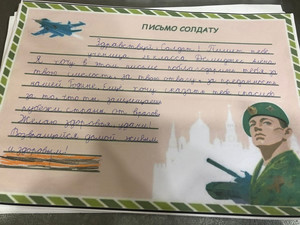 ПИСЬМО СОЛДАТУ
Здравствуй, Солдат! Пишет тебе
ученица класса
Я хочу в этом письме поблагодарить тебя за
твою смелость, за твою отвагу и преданность
нашей Родине. Ещё хочу сказать тебе спасибо
за то что ты защищаешь
рубежи страны от врагов.
Желаю здоровья, удачи!
Возвращайся домой живым
и здоровым!